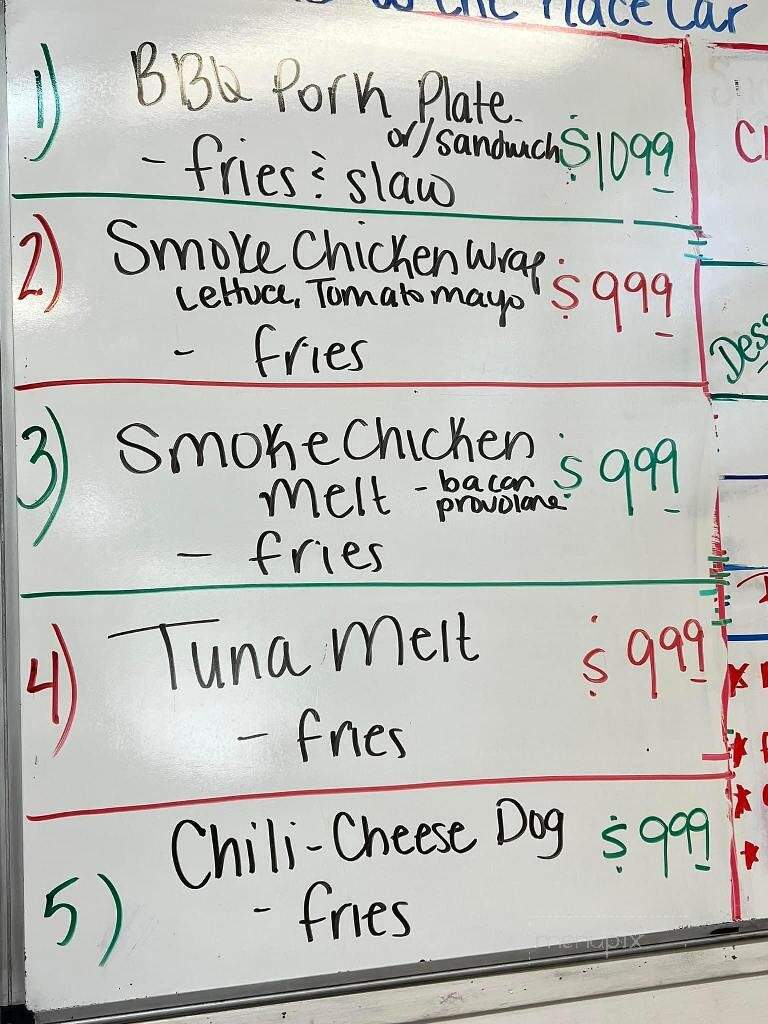 the Place Car
1) BBQ Pork Plate
or/sandwich $10.99
- fries & slaw
2) Smoke Chicken Wrap
Lettuce, Tomato mayo $9.99
- fries
3) Smoke Chicken
melt - bacon $9.99
provolone
- fries
4) Tuna melt $9.99
- fries
5) Chili-Cheese Dog $9.99
- fries
menupix